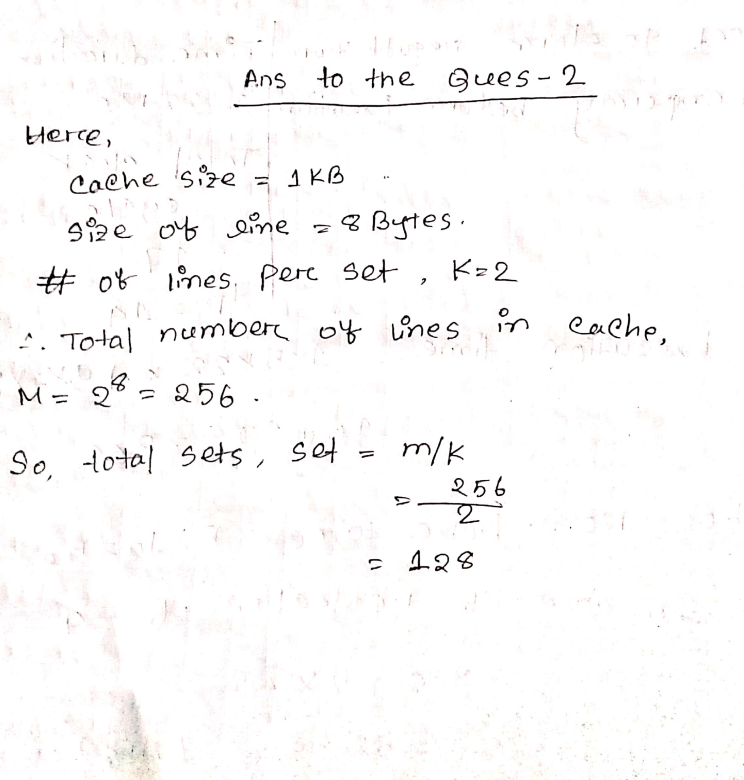 Ans to the Ques-2
Here,
Cache size = 1 KB
Size of line = 8 Bytes.
# of lines per set, K=2
∴ Total number of lines in cache,
M = 2⁸ = 256.
So, total sets, set = m/K
= 256/2
= 128